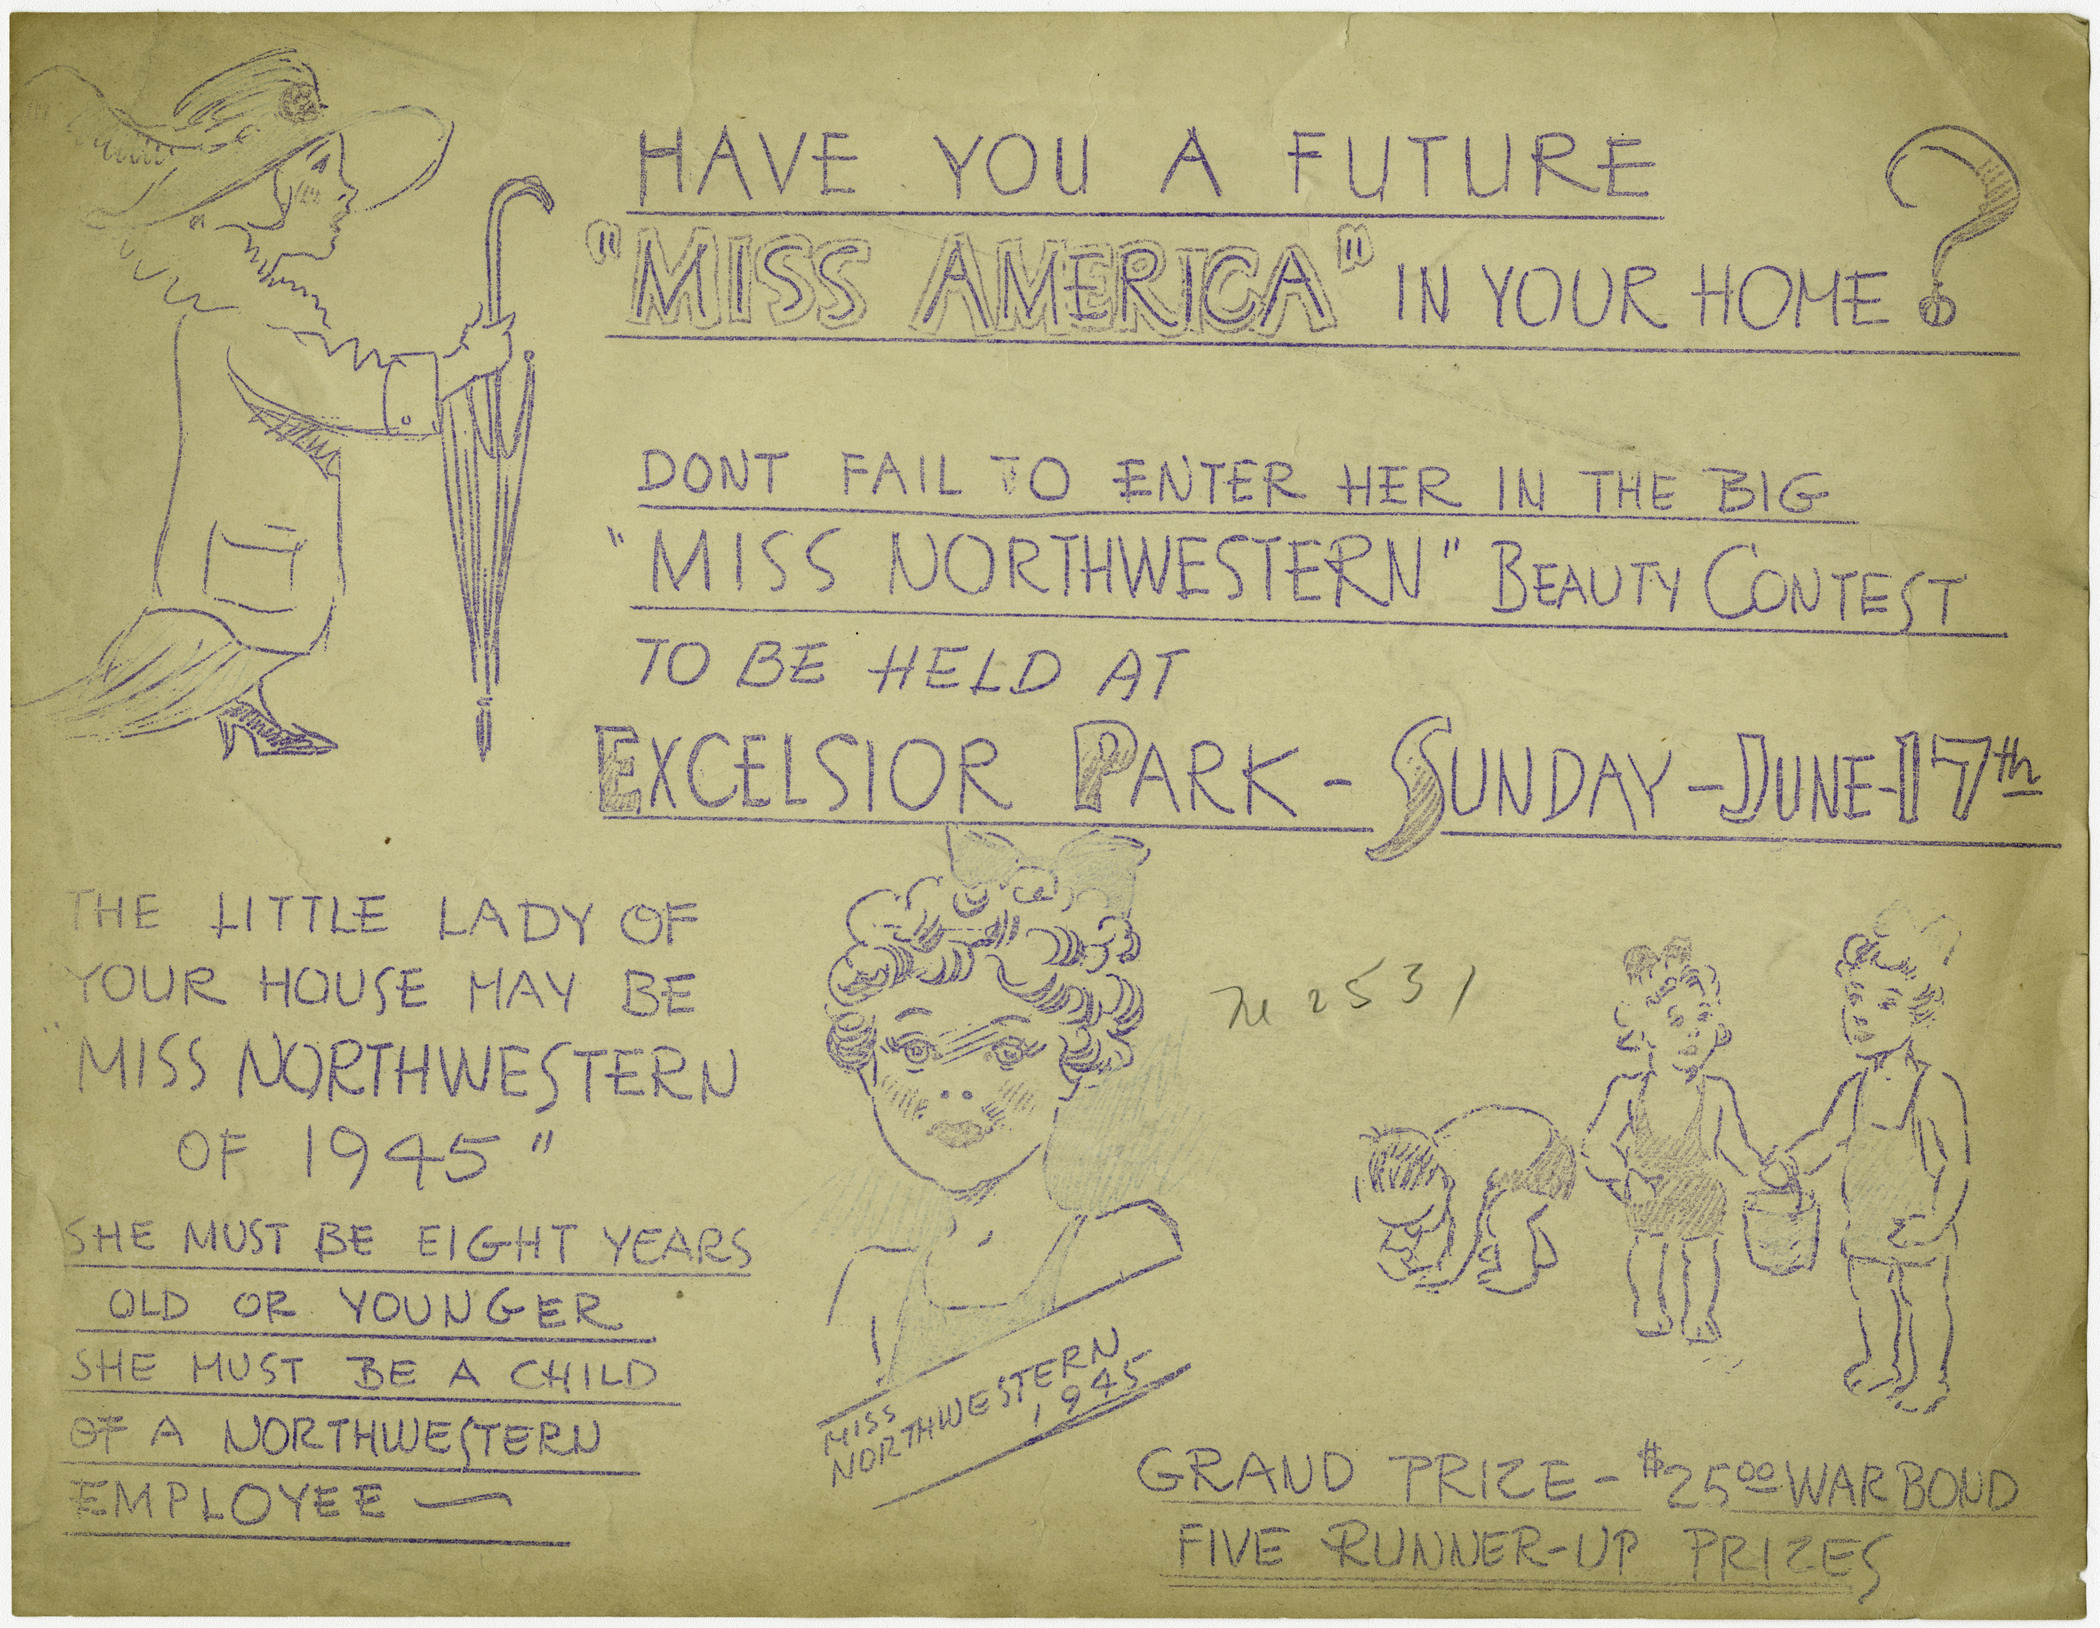 HAVE YOU A FUTURE
"MISS AMERICA" IN YOUR HOME?
DONT FAIL TO ENTER HER IN THE BIG
"MISS NORTHWESTERN" BEAUTY CONTEST
TO BE HELD AT
EXCELSIOR PARK - SUNDAY - JUNE - 17th
THE LITTLE LADY OF
YOUR HOUSE MAY BE
"MISS NORTHWESTERN
OF 1945"
SHE MUST BE EIGHT YEARS
OLD OR YOUNGER
SHE MUST BE A CHILD
OF A NORTHWESTERN
EMPLOYEE —
2531
MISS
NORTHWESTERN
1945
GRAND PRIZE - $25.00 WAR BOND
FIVE RUNNER-UP PRIZES